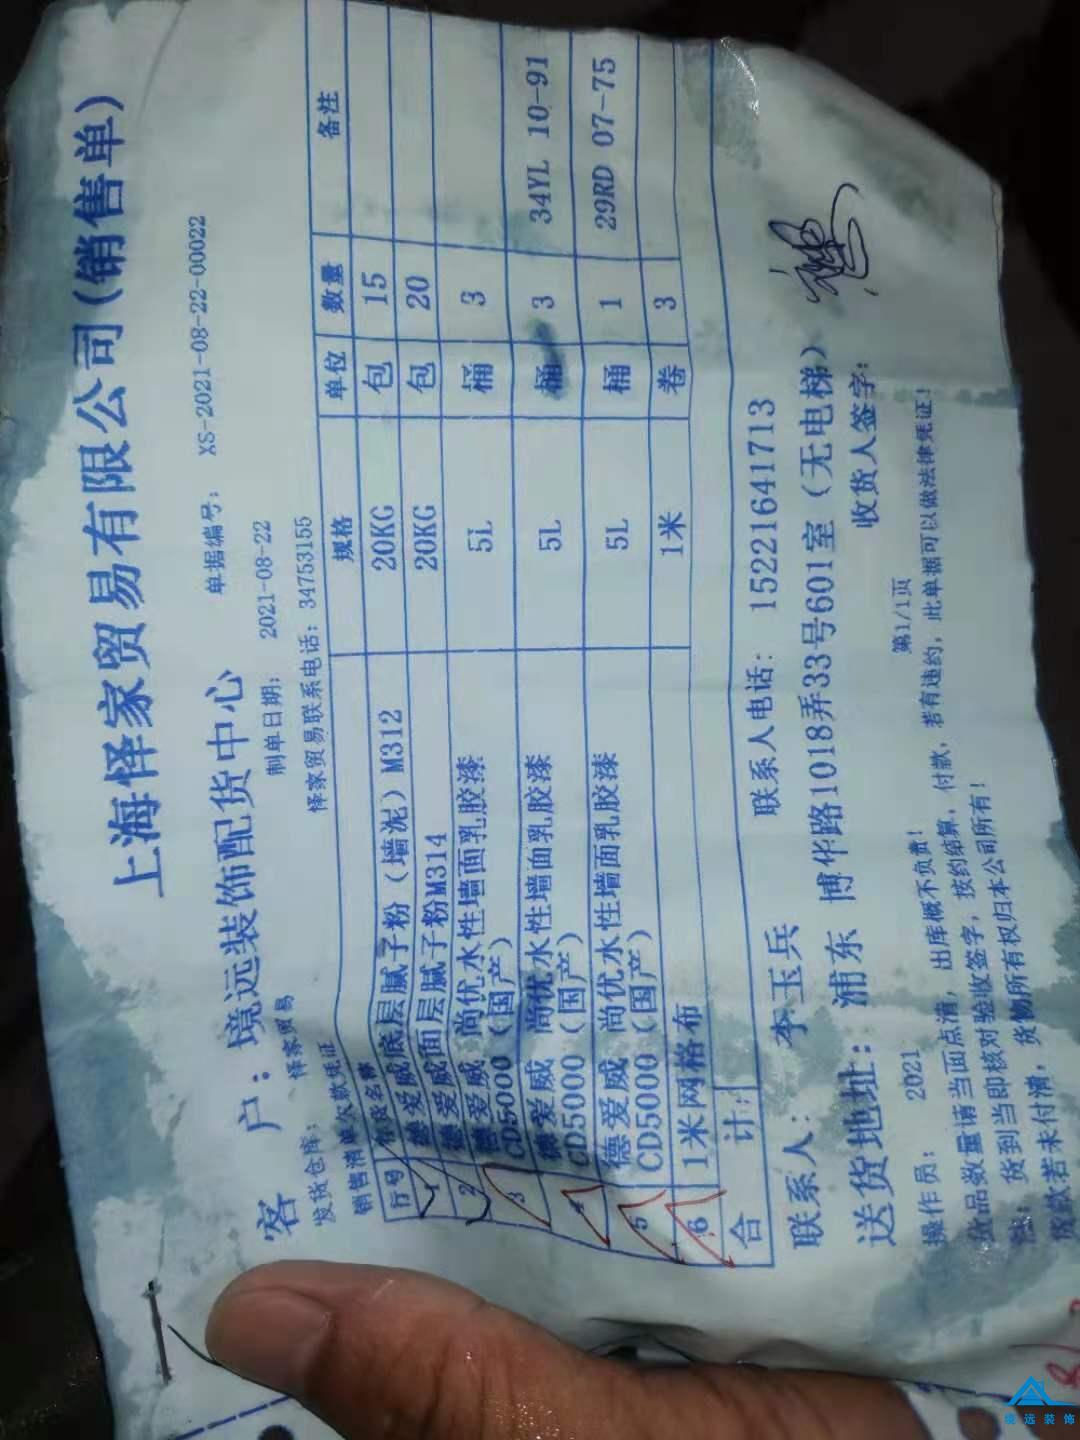 上海怿家贸易有限公司(销售单)
客 户：境远装饰配货中心 单据编号: XS-2021-08-22-00022
发货仓库: 怿家贸易 制单日期: 2021-08-22
销售清单欠款凭证 怿家贸易联系电话: 34753155
行号 存货名称 规格 单位 数量 备注
1 德爱威底层腻子粉（墙泥）M312 20KG 包 15
2 德爱威面层腻子粉M314 20KG 包 20
3 德爱威 尚优水性墙面乳胶漆 5L 桶 3
CD5000（国产）
4 德爱威 尚优水性墙面乳胶漆 5L 桶 3 34YL 10-91
CD5000（国产）
5 德爱威 尚优水性墙面乳胶漆 5L 桶 1 29RD 07-75
CD5000（国产）
6 1米网格布 1米 卷 3
合 计:
联系人: 李玉兵 联系人电话: 15221641713
送货地址: 浦东 博华路1018弄33号601室（无电梯）
操作员: 2021 第1/1页 收货人签字:
货品数量请当面点清，出库概不负责!
货到当即核对验收签字，按约结算，付款，若有违约，此单据可以做法律凭证!
货款若未付清，货物所有权归本公司所有!
境远装饰